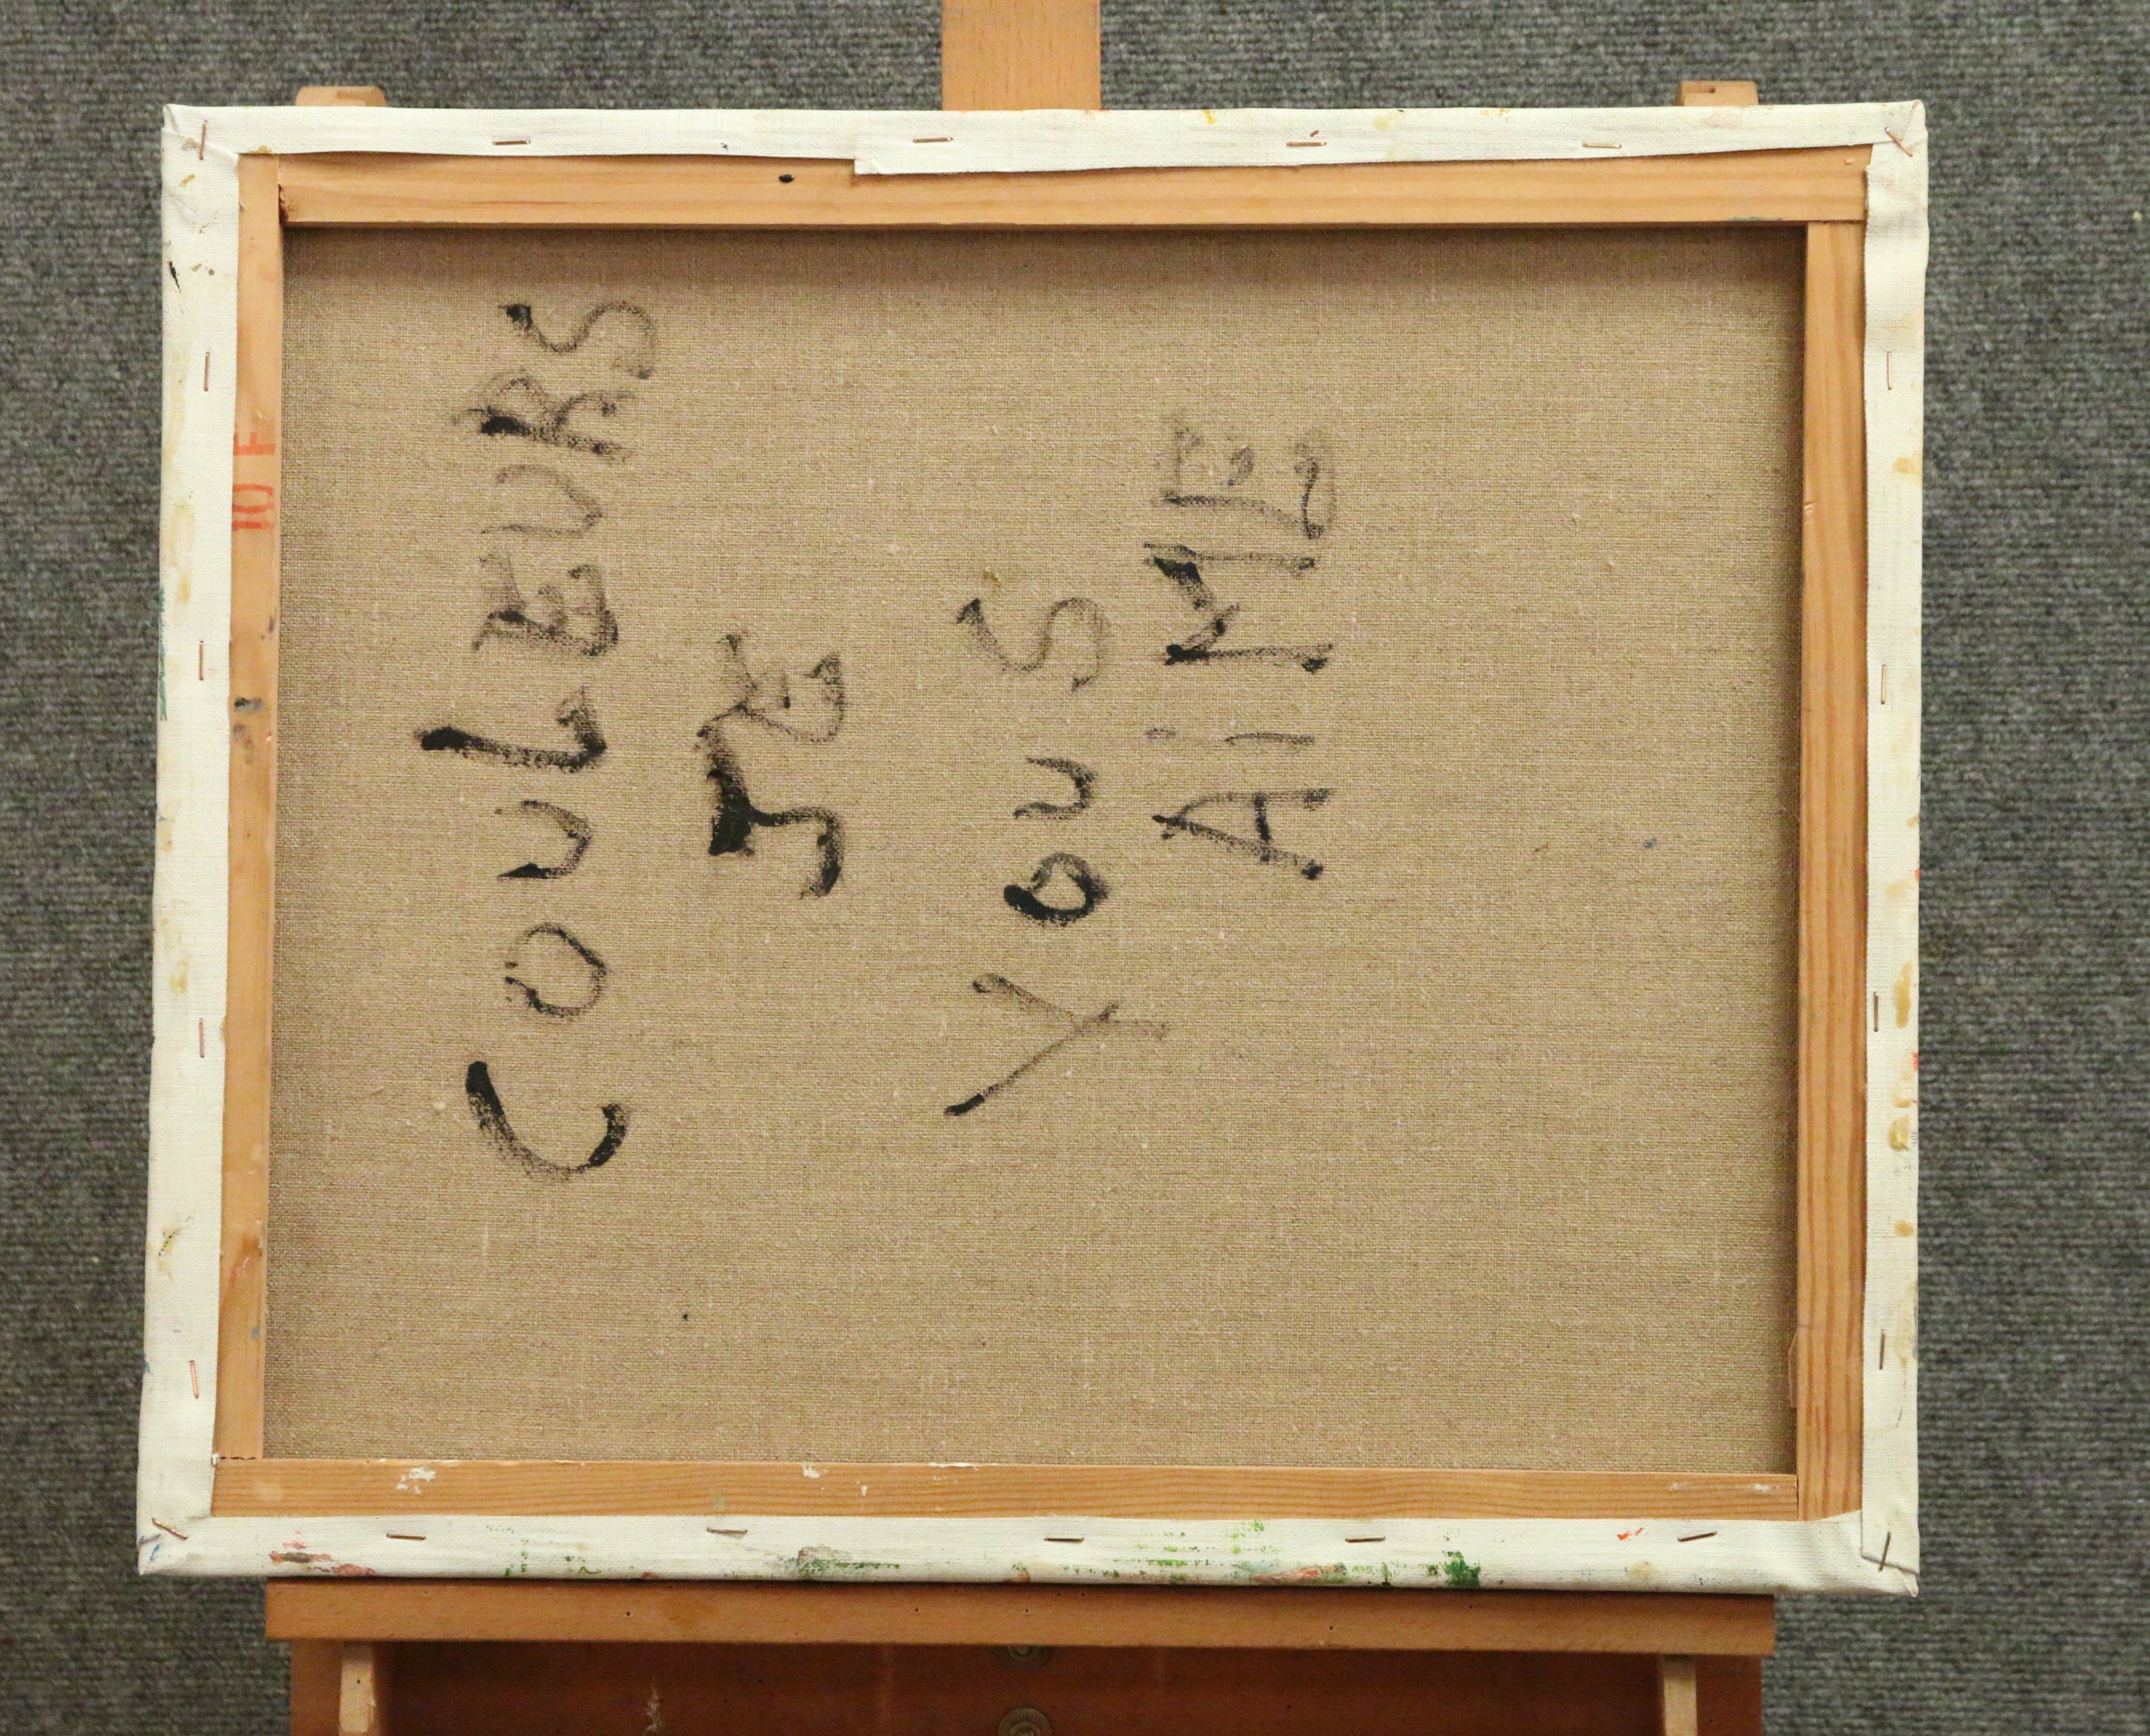 COULEURS
JE
YOUS
AiME
10 F